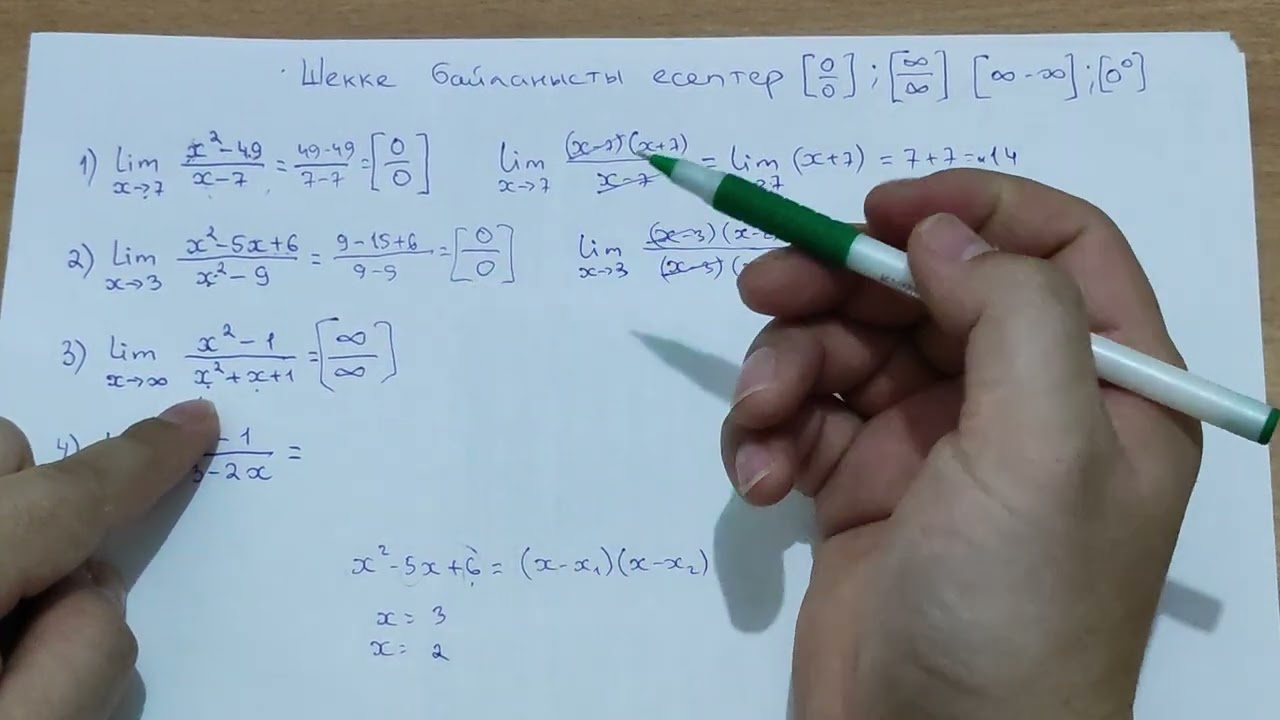 Шекке байланысты есептер [0/0]; [∞/∞] [∞-∞]; [0⁰]
1) Lim x→7 (x²-49)/(x-7) = (49-49)/(7-7) = [0/0] Lim x→7 (x-7)(x+7)/(x-7) = Lim (x+7) = 7+7 = 14
2) Lim x→3 (x²-5x+6)/(x²-9) = (9-15+6)/(9-9) = [0/0] Lim x→3 (x-3)(x-/(x-3)(
3) Lim x→∞ (x²-1)/(x²+x+1) = [∞/∞]
4) -1/3-2x =
x²-5x+6 = (x-x₁)(x-x₂)
x = 3
x = 2